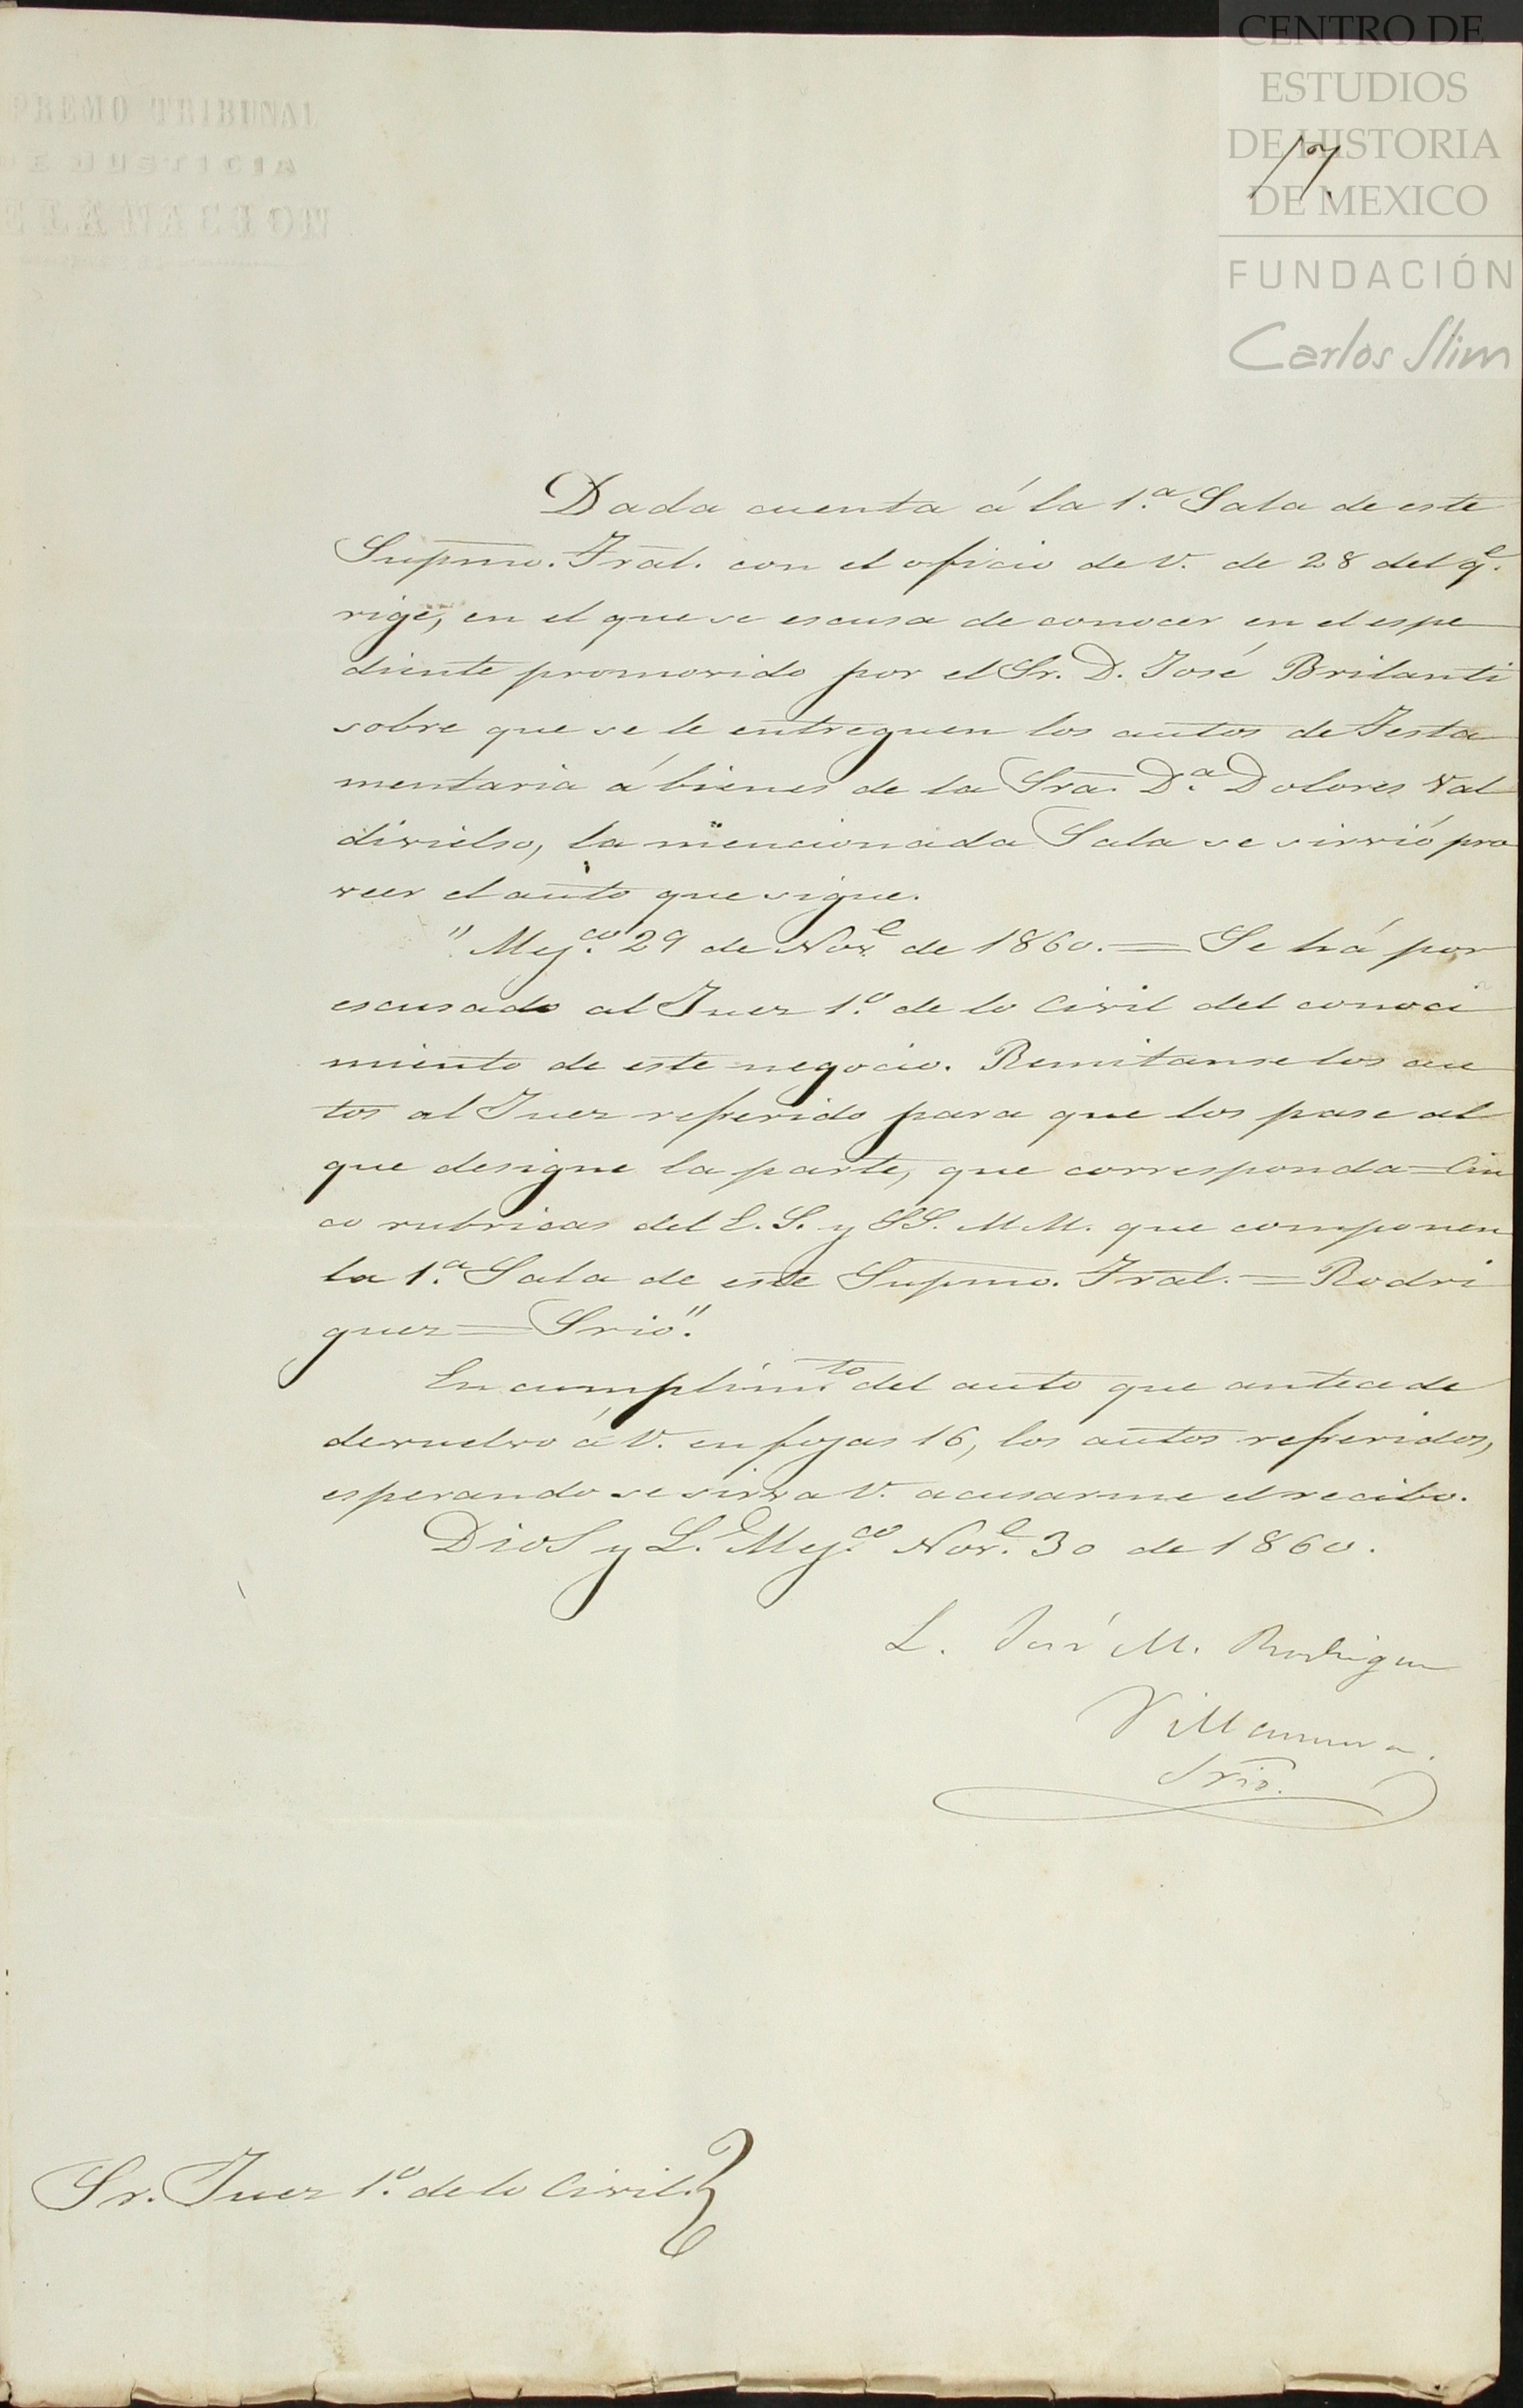 PREMO TRIBUNAL
DE JUSTICIA
E LA NACION
CENTRO DE
ESTUDIOS
DE HISTORIA
DE MEXICO
FUNDACIÓN
Carlos Slim
17.
Dada cuenta á la 1.ª Sala de este
Supmo. Tral. con el oficio de V. de 28 del q.e
rige, en el que se escusa de conocer en el espe
diente promovido por el Sr. D. José Brilanti
sobre que se le entreguen los autos de Testa
mentaria á bienes de la Sra. D.ª Dolores Val
divielso, la mencionada Sala se sirvió pro
veer el auto que sigue.
"Mej.co 29 de Nov.e de 1860. = Se há por
escusado al Juez 1.º de lo Civil del conoci
miento de este negocio. Remitanse los au
tos al Juez referido para que los pase al
que designe la parte, que corresponda = Cin
co rubricas del E. S. y SS. MM. que componen
la 1.ª Sala de este Supmo. Tral. = Rodri
guez = Srio."
En cumplim.to del auto que antecede
devuelvo á V. en fojas 16, los autos referidos,
esperando se sirva V. acusarme el recibo.
Dios y L. Mej.co Nov.e 30 de 1860.
L. José M. Rodriguez
Villanueva.
Srio.
Sr. Juez 1.º de lo Civil.